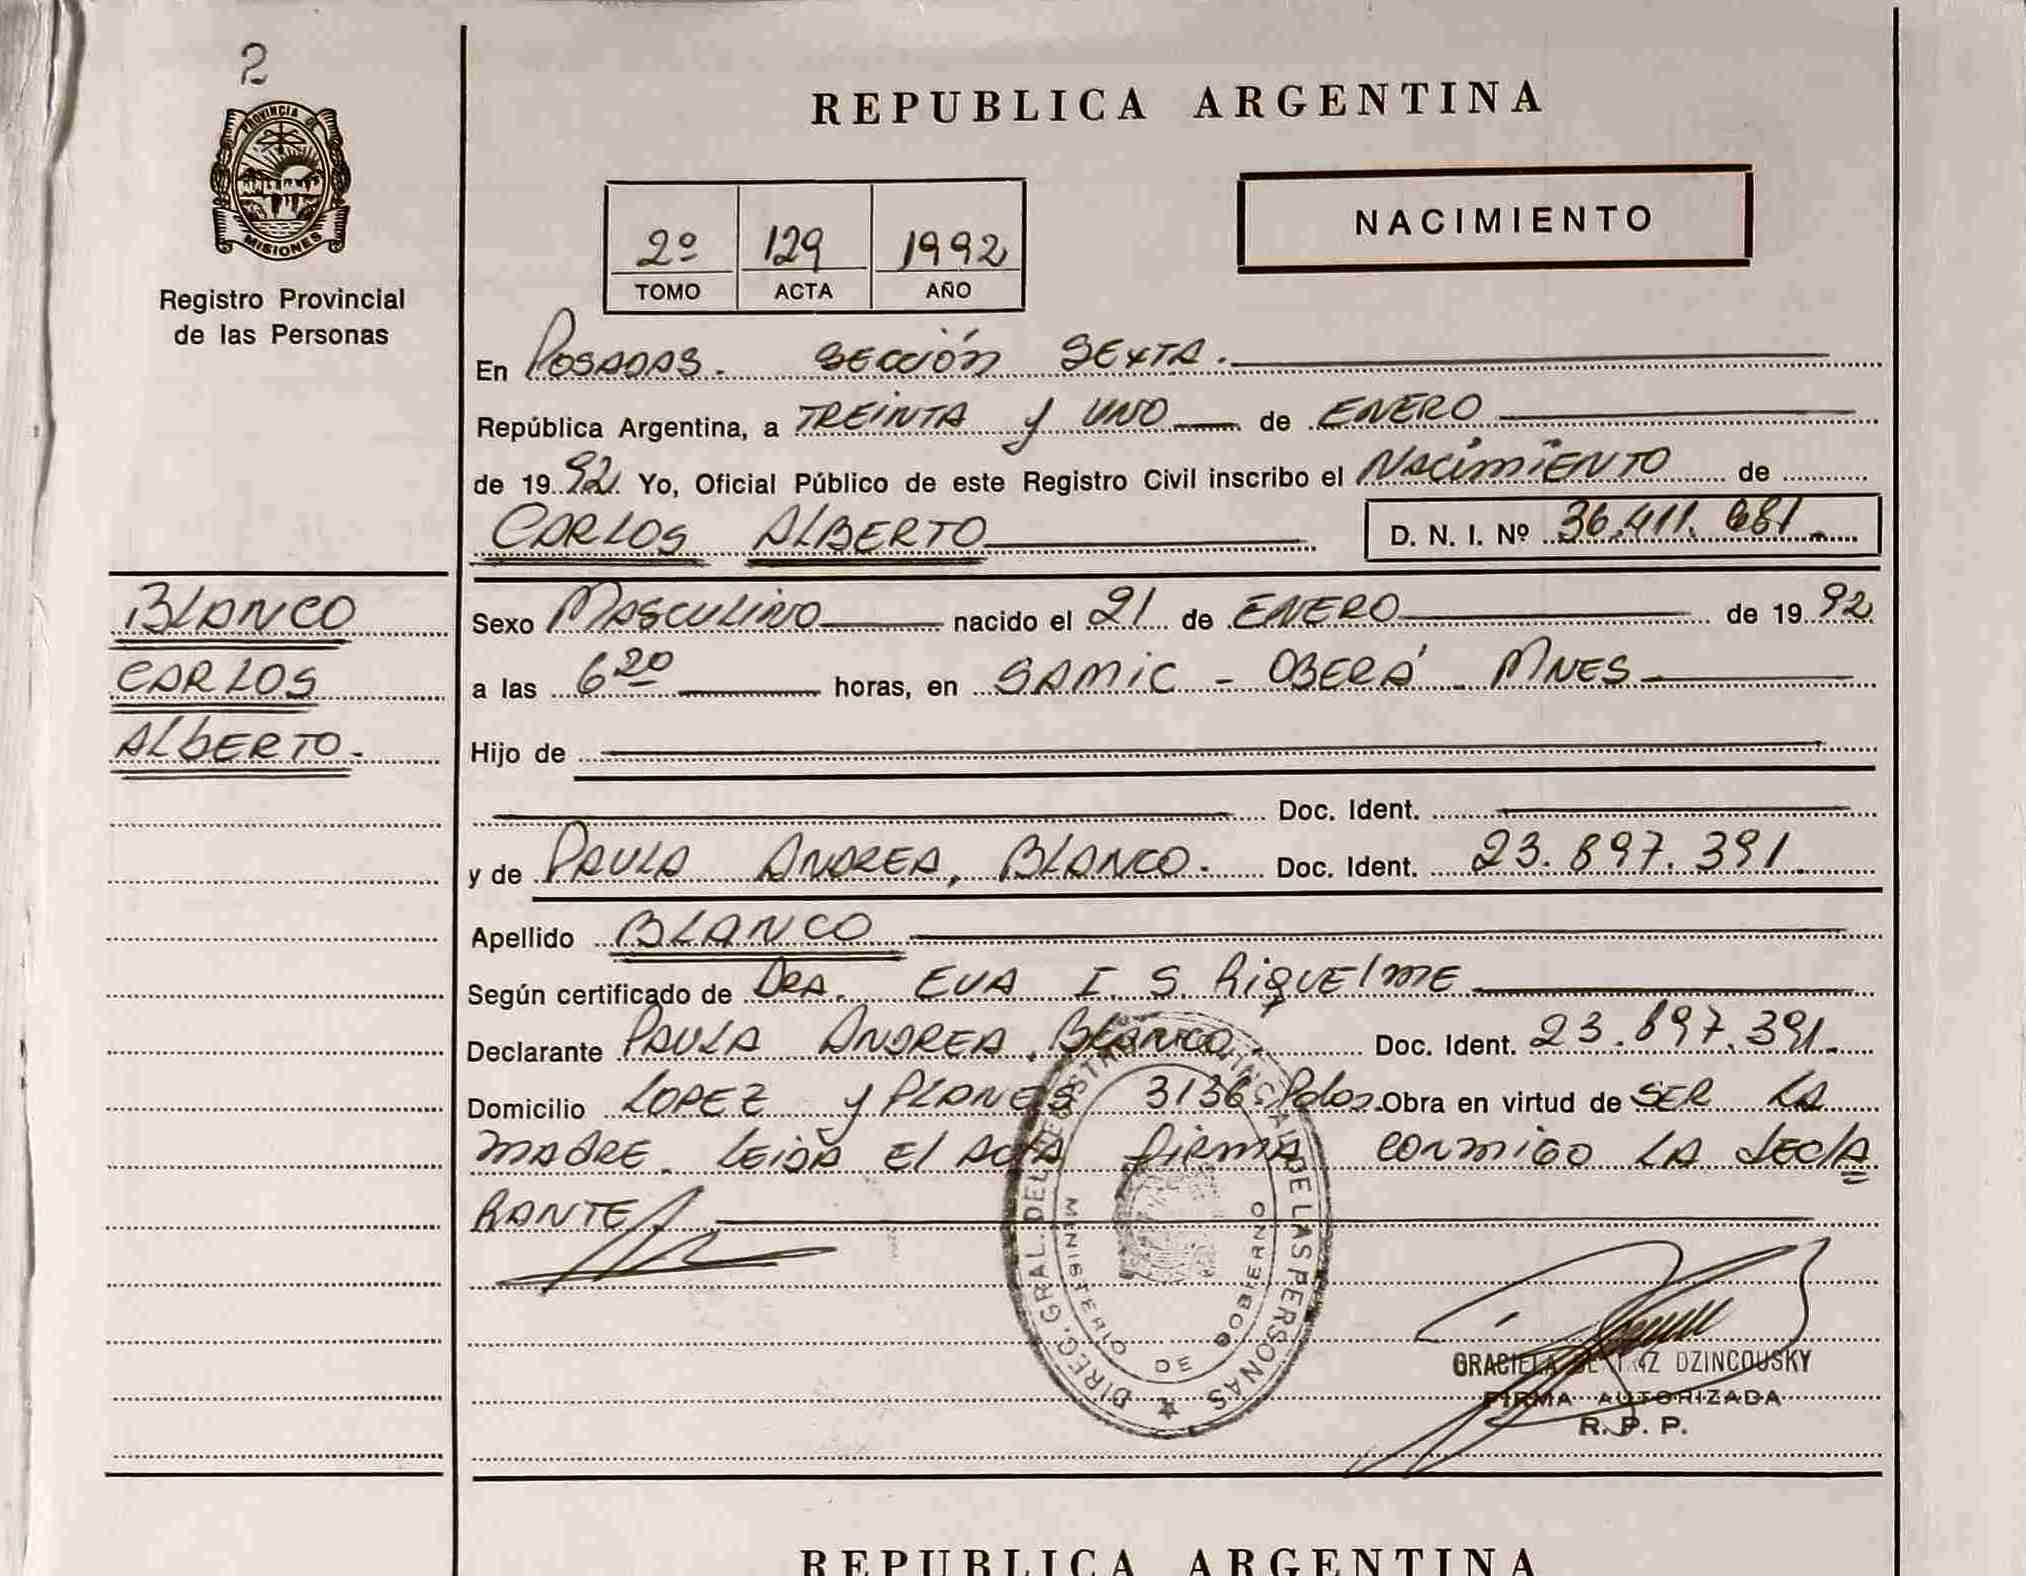 2
PROVINCIA DE
MISIONES
Registro Provincial
de las Personas
REPUBLICA ARGENTINA
2º 129 1992
TOMO ACTA AÑO
NACIMIENTO
En POSADAS. SECCIÓN SEXTA.
República Argentina, a TREINTA y UNO de ENERO
de 1992. Yo, Oficial Público de este Registro Civil inscribo el NACIMIENTO de
CARLOS ALBERTO D. N. I. Nº 36.411.681.
BLANCO
CARLOS
ALBERTO.
Sexo MASCULINO nacido el 21 de ENERO de 1992
a las 6 20 horas, en SAMIC - OBERÁ MNES
Hijo de
Doc. Ident.
y de PAULA ANDREA, BLANCO. Doc. Ident. 23.897.391.
Apellido BLANCO
Según certificado de DRA. EVA I. S. RIQUELME
Declarante PAULA ANDREA, BLANCO. Doc. Ident. 23.897.391.
Domicilio LOPEZ y PLANES 3136 Pdas. Obra en virtud de SER LA
MADRE. LEIDA El ACTA firma CONMIGO LA DECLA
RANTE
DIREC. GRAL. DEL REGISTRO PROVINCIAL DE LAS PERSONAS
MINISTERIO DE GOBIERNO
GRACIELA BEATRIZ DZINCOUSKY
FIRMA AUTORIZADA
R. P. P.
REPUBLICA ARGENTINA